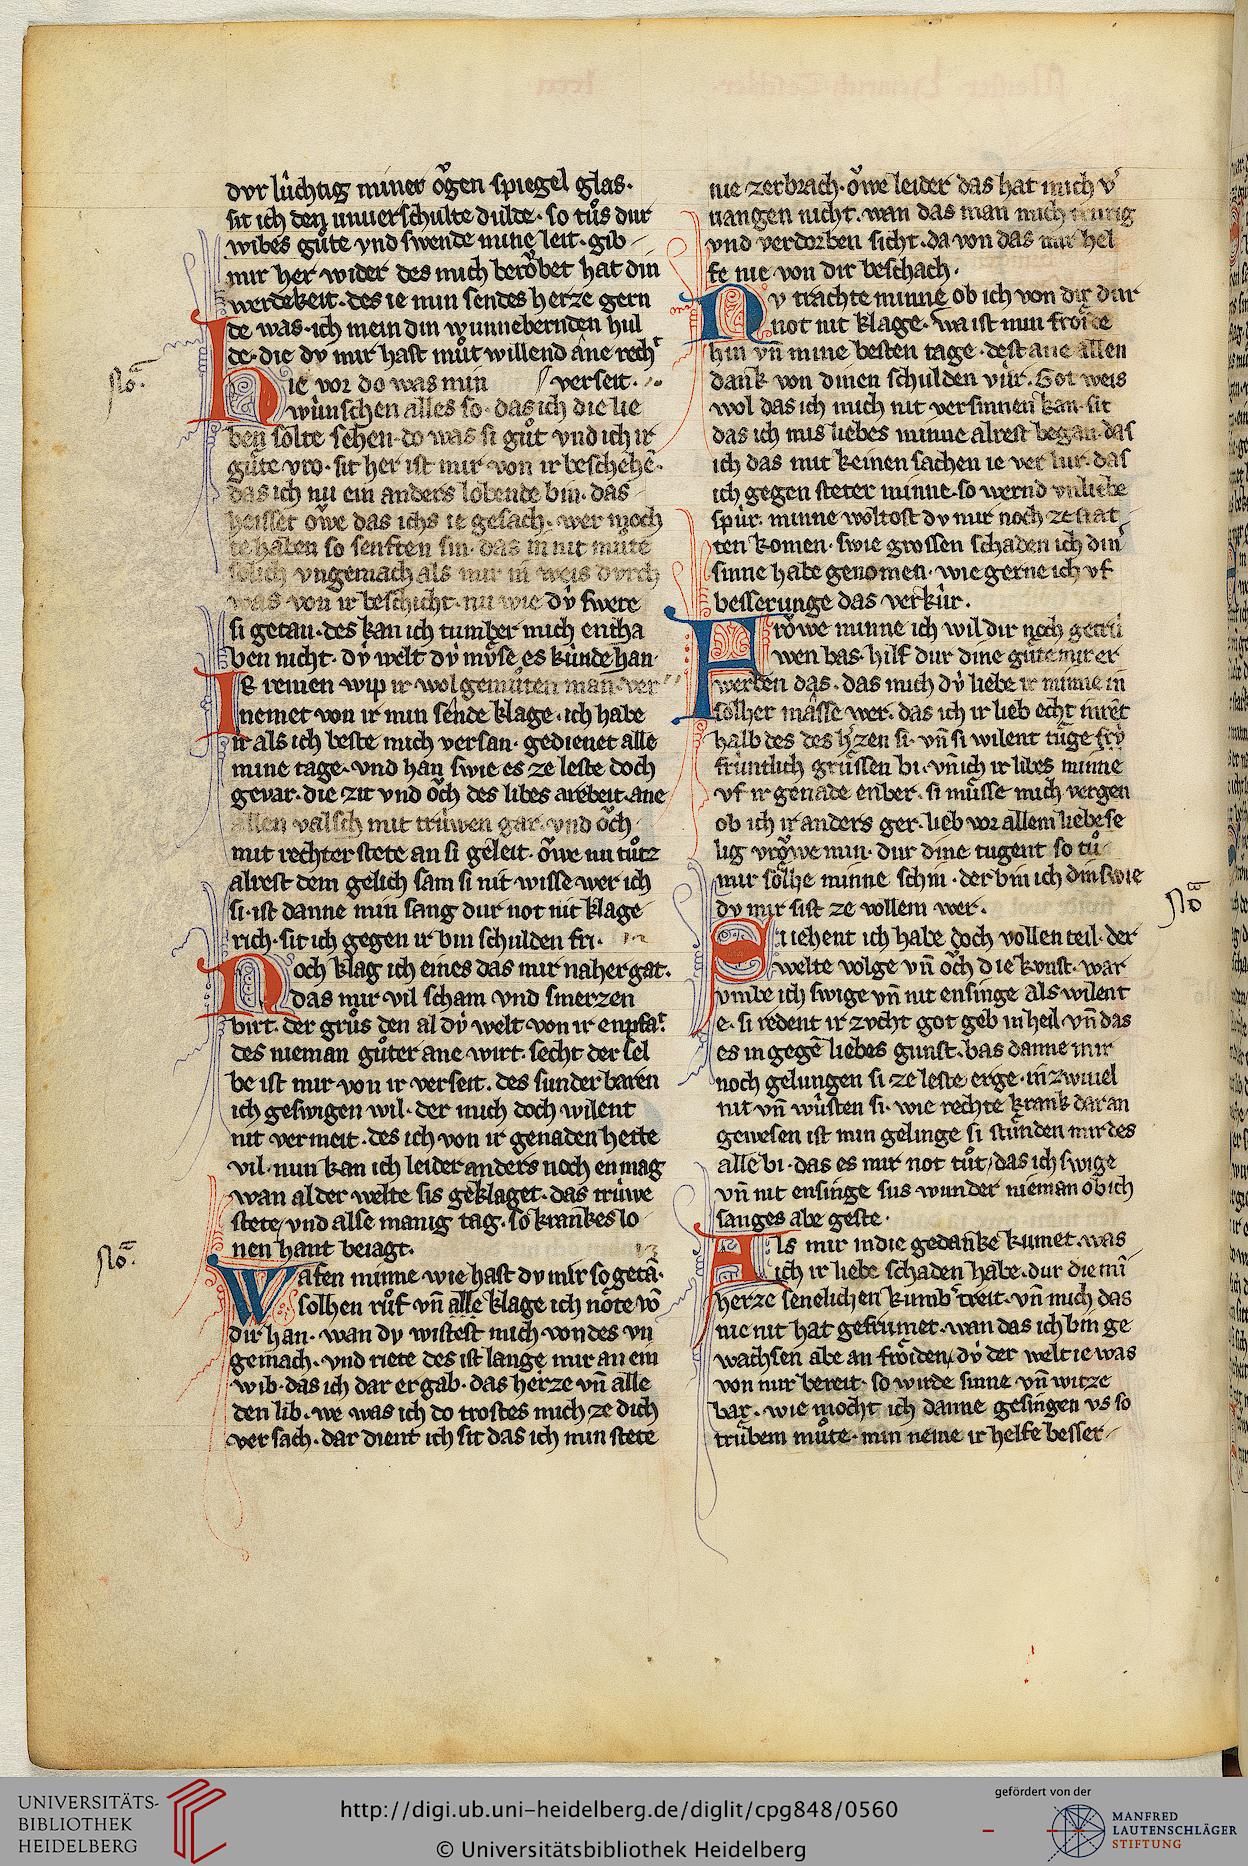 dvr lûchtig miner ǒgen spiegel glas·
sit ich den unuerschulte dulde· so tůs dur
wibes gůte vnd swende mine leit· gib
mir her wider des mich berǒbet hat din
werdekeit· des ie min sendes herze gern
de was· ich mein din wunnebernden hul
de· die dv mir hast můt willend âne rech
Hie vor do was min verseit·
wûnschen alles so· das ich die lie
ben solte sehen· do was si gůt vnd ich ir
gûte vro· sit her ist mir von ir beschehē·
das ich nu ein anders lobende bin· das
heisset ǒwe das ichs ie gesach· wer moch
te haben so senften sin· das in nit mûte
solich vngemach als mir in weis dvrch
was von ir beschicht· nu wie dv̂ swere
si getan· des kan ich tumber mich entha
ben nicht· dv̂ welt dv̂ mv̊se es kûnde han·
IR reinen wip ir wol gemůten man· ver
nemet von ir min sende klage· ich habe
ir als ich beste mich versan· gedienet alle
mine tage· vnd han swie es ze leste doch
gevar· die zit vnd ǒch des libes arebeit· ane
allen valsch mit trûwen gar· vnd ǒch
mit rechter stete an si geleit· ǒwe nu tůtz
alrest dem gelich sam si nit wisse wer ich
si· ist danne min sang dur not nit klage
rich· sit ich gegen ir bin schulden fri·
Noch klag ich eines das mir naher gat·
das mir vil scham vnd smerzen
birt· der grůs den al dv̂ welt von ir enpfat·
des nieman gůter ane wirt· secht der sel
be ist mir von ir verseit· des sunderbaren
ich geswigen wil· der mich doch wilent
nit vermeit· des ich von ir genaden hette
vil· nun kan ich leider anders noch enmag
wan al der welte sis geklaget· das trûwe
stete vnd alse manig tag· so krankes lo
nen hant beiagt·
Wafen minne wie hast dv mir so getā·
solhen růf vn̄ alle klage ich nôte vō
dir han· wan dv wistest mich von des vn
gemach· vnd riete des ist lange mir an ein
wib· das ich dar ergab· das herze vn̄ alle
den lib· we was ich do trostes mich ze dich
versach· dar dient ich sit das ich min stete
nie zerbrach· ǒwe leider das hat mich v
uangen nicht· wan das man mich trurig
vnd verdorben sicht· da von das mir hel
fe nie von dir beschach·
Nv trachte minne ob ich von dir dur
not nit klage· wa ist min frǒide
hin vn̄ mine besten tage· dest ane allen
dank von dinen schulden vûr· Got weis
wol das ich mich nit versinnen kan· sit
das ich mis liebes minne alrest began· das
ich das mit keinen sachen ie verlur· das
ich gegen steter minne· so wernd vnliebe
spûr· minne woltost dv mir noch ze stat
ten komen· swie grossen schaden ich din
sinne habe genomen· wie gerne ich vf
besserunge das verkûr·
Frǒwe minne ich wil dir noch getrû
wen bas· hilf dur dine gûte mir er
werben das· das mich dv̂ liebe ir minne in
solher mâsse wer· das ich ir lieb echt inret
halb des des h'zen si· vn̄ si wilent tûge frv̂
frûntlich grûssen bi· vn̄ ich ir libes minne
vf ir genade enber· si mûsse mich vergen
ob ich ir anders ger· lieb vor allem liebe se
lig vrǒwe min· dur dine tugent so tů
mir sôlhe minne schin· der bin ich din swie
dv mir sist ze vollem wer·
Si iehent ich habe doch vollen teil· der
welte volge vn̄ ǒch die kvnst· war
vmbe ich swige vn̄ nit ensinge als wilent
e· si redent ir zvcht got geb in heil· vn̄ das
es in gegē liebes gunst· bas danne mir
noch gelungen si ze leste erge· in zwiuel
nit vn̄ wûsten si· wie rechte krank dar an
gewesen ist min gelinge si stûnden mir des
alle bi· das es mir not tůt/ das ich swige
vn̄ nit ensinge sus wunder nieman ob ich
sanges abe geste·
Als mir in die gedanke kumet· was
ich ir liebe schaden habe· dur die mī
herze senelichen kumb' treit· vn̄ mich das
nie nit hat gefrumet· wan das ich bin ge
wachsen abe an frǒiden· dv̂ der welt ie was
von mir bereit· so wirde sinne vn̄ witze
bar· wie mocht ich danne gesingen vs so
trûbem můte· min neme ir helfe besser
No·
No·
No
UNIVERSITÄTS-
BIBLIOTHEK
HEIDELBERG
http://digi.ub.uni-heidelberg.de/diglit/cpg848/0560
© Universitätsbibliothek Heidelberg
gefördert von der
MANFRED
LAUTENSCHLÄGER
STIFTUNG